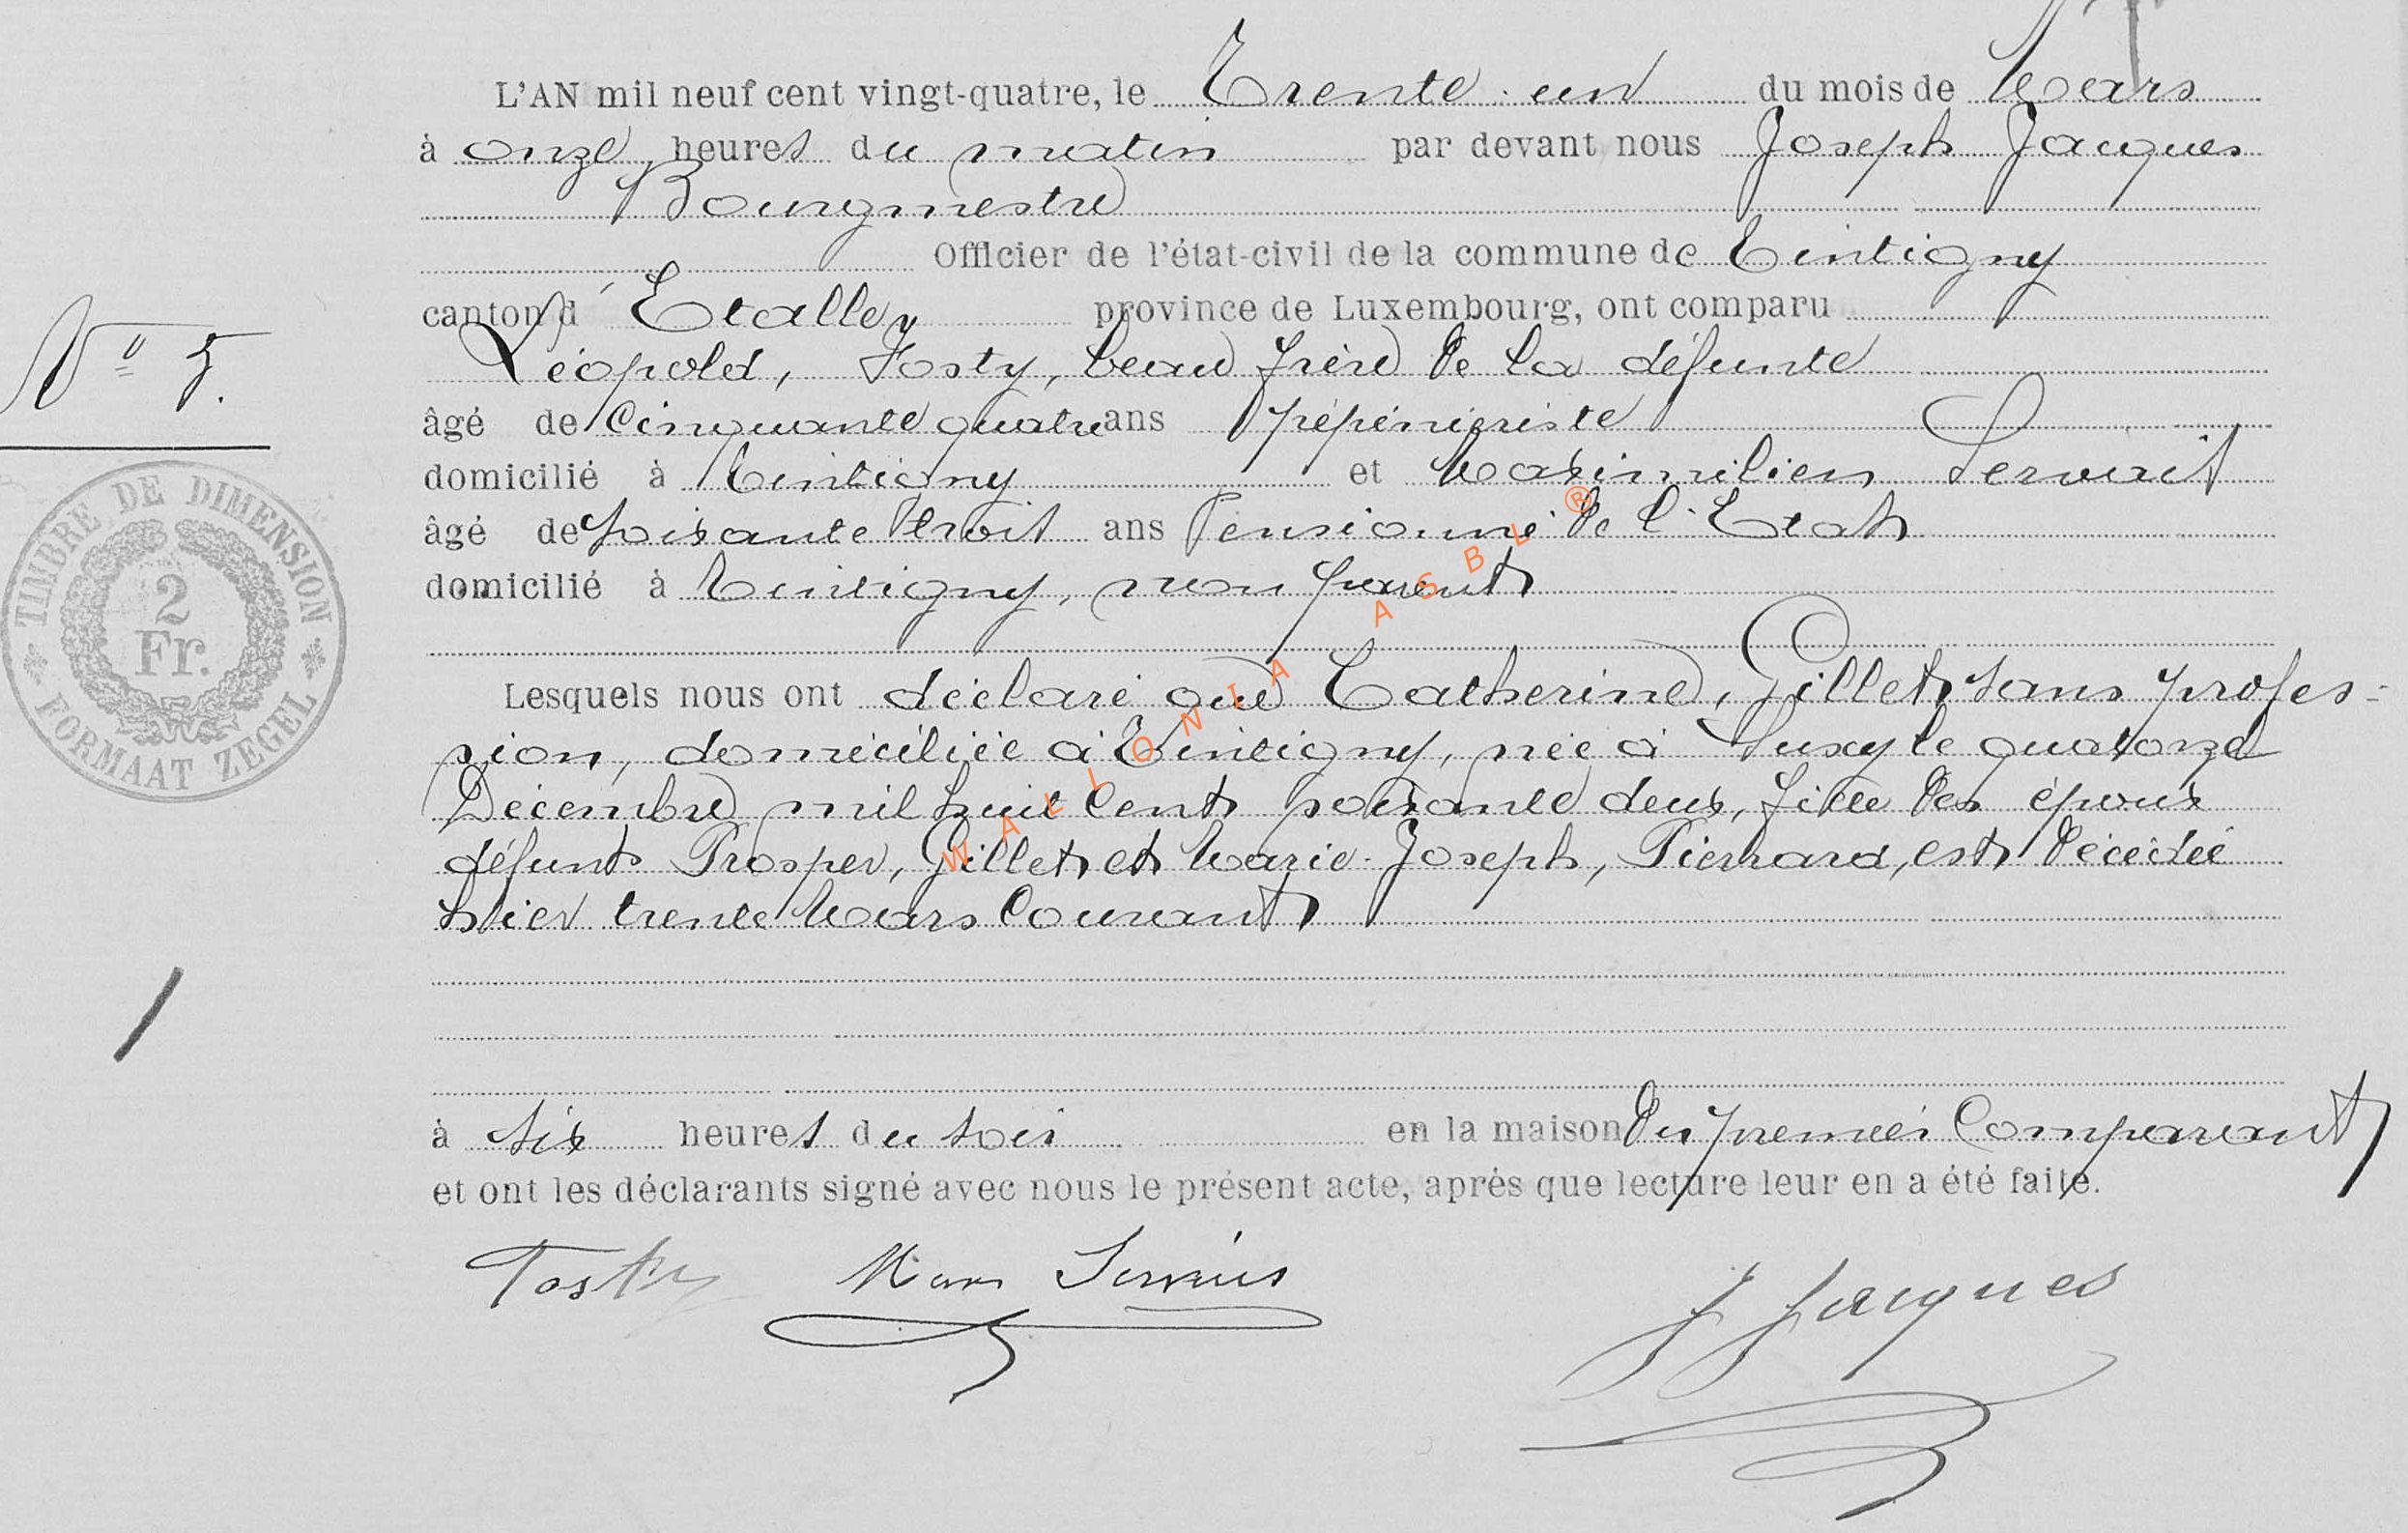 L'AN mil neuf cent vingt-quatre, le Trente un du mois de Mars
à onze heures du matin par devant nous Joseph Jacques
Bourgmestre
Officier de l'état-civil de la commune de Tintigny
canton d' Etalle, province de Luxembourg, ont comparu
Léopold, Tosty, beau frère de la défunte
âgé de Cinquante quatre ans pépiniériste
domicilié à Tintigny et Maximilien Servais
âgé de soixante trois ans Pensionné de l'Etat
domicilié à Tintigny, non parent
Lesquels nous ont déclaré que Catherine, Gillet, sans profes-
sion, domiciliée à Tintigny, née à Suxy le quatorze
Décembre mil huit Cent soixante deux, fille des époux
défunts Prosper, Gillet et Marie-Joseph, Pierrard, est décédée
hier trente Mars Courant
à six heures du soir en la maison du premier Comparant
et ont les déclarants signé avec nous le présent acte, après que lecture leur en a été faite.
Tosty Max Servais J Jacques
N° 5.
TIMBRE DE DIMENSION
2
Fr.
FORMAAT ZEGEL
WALLONIA ASBL ®